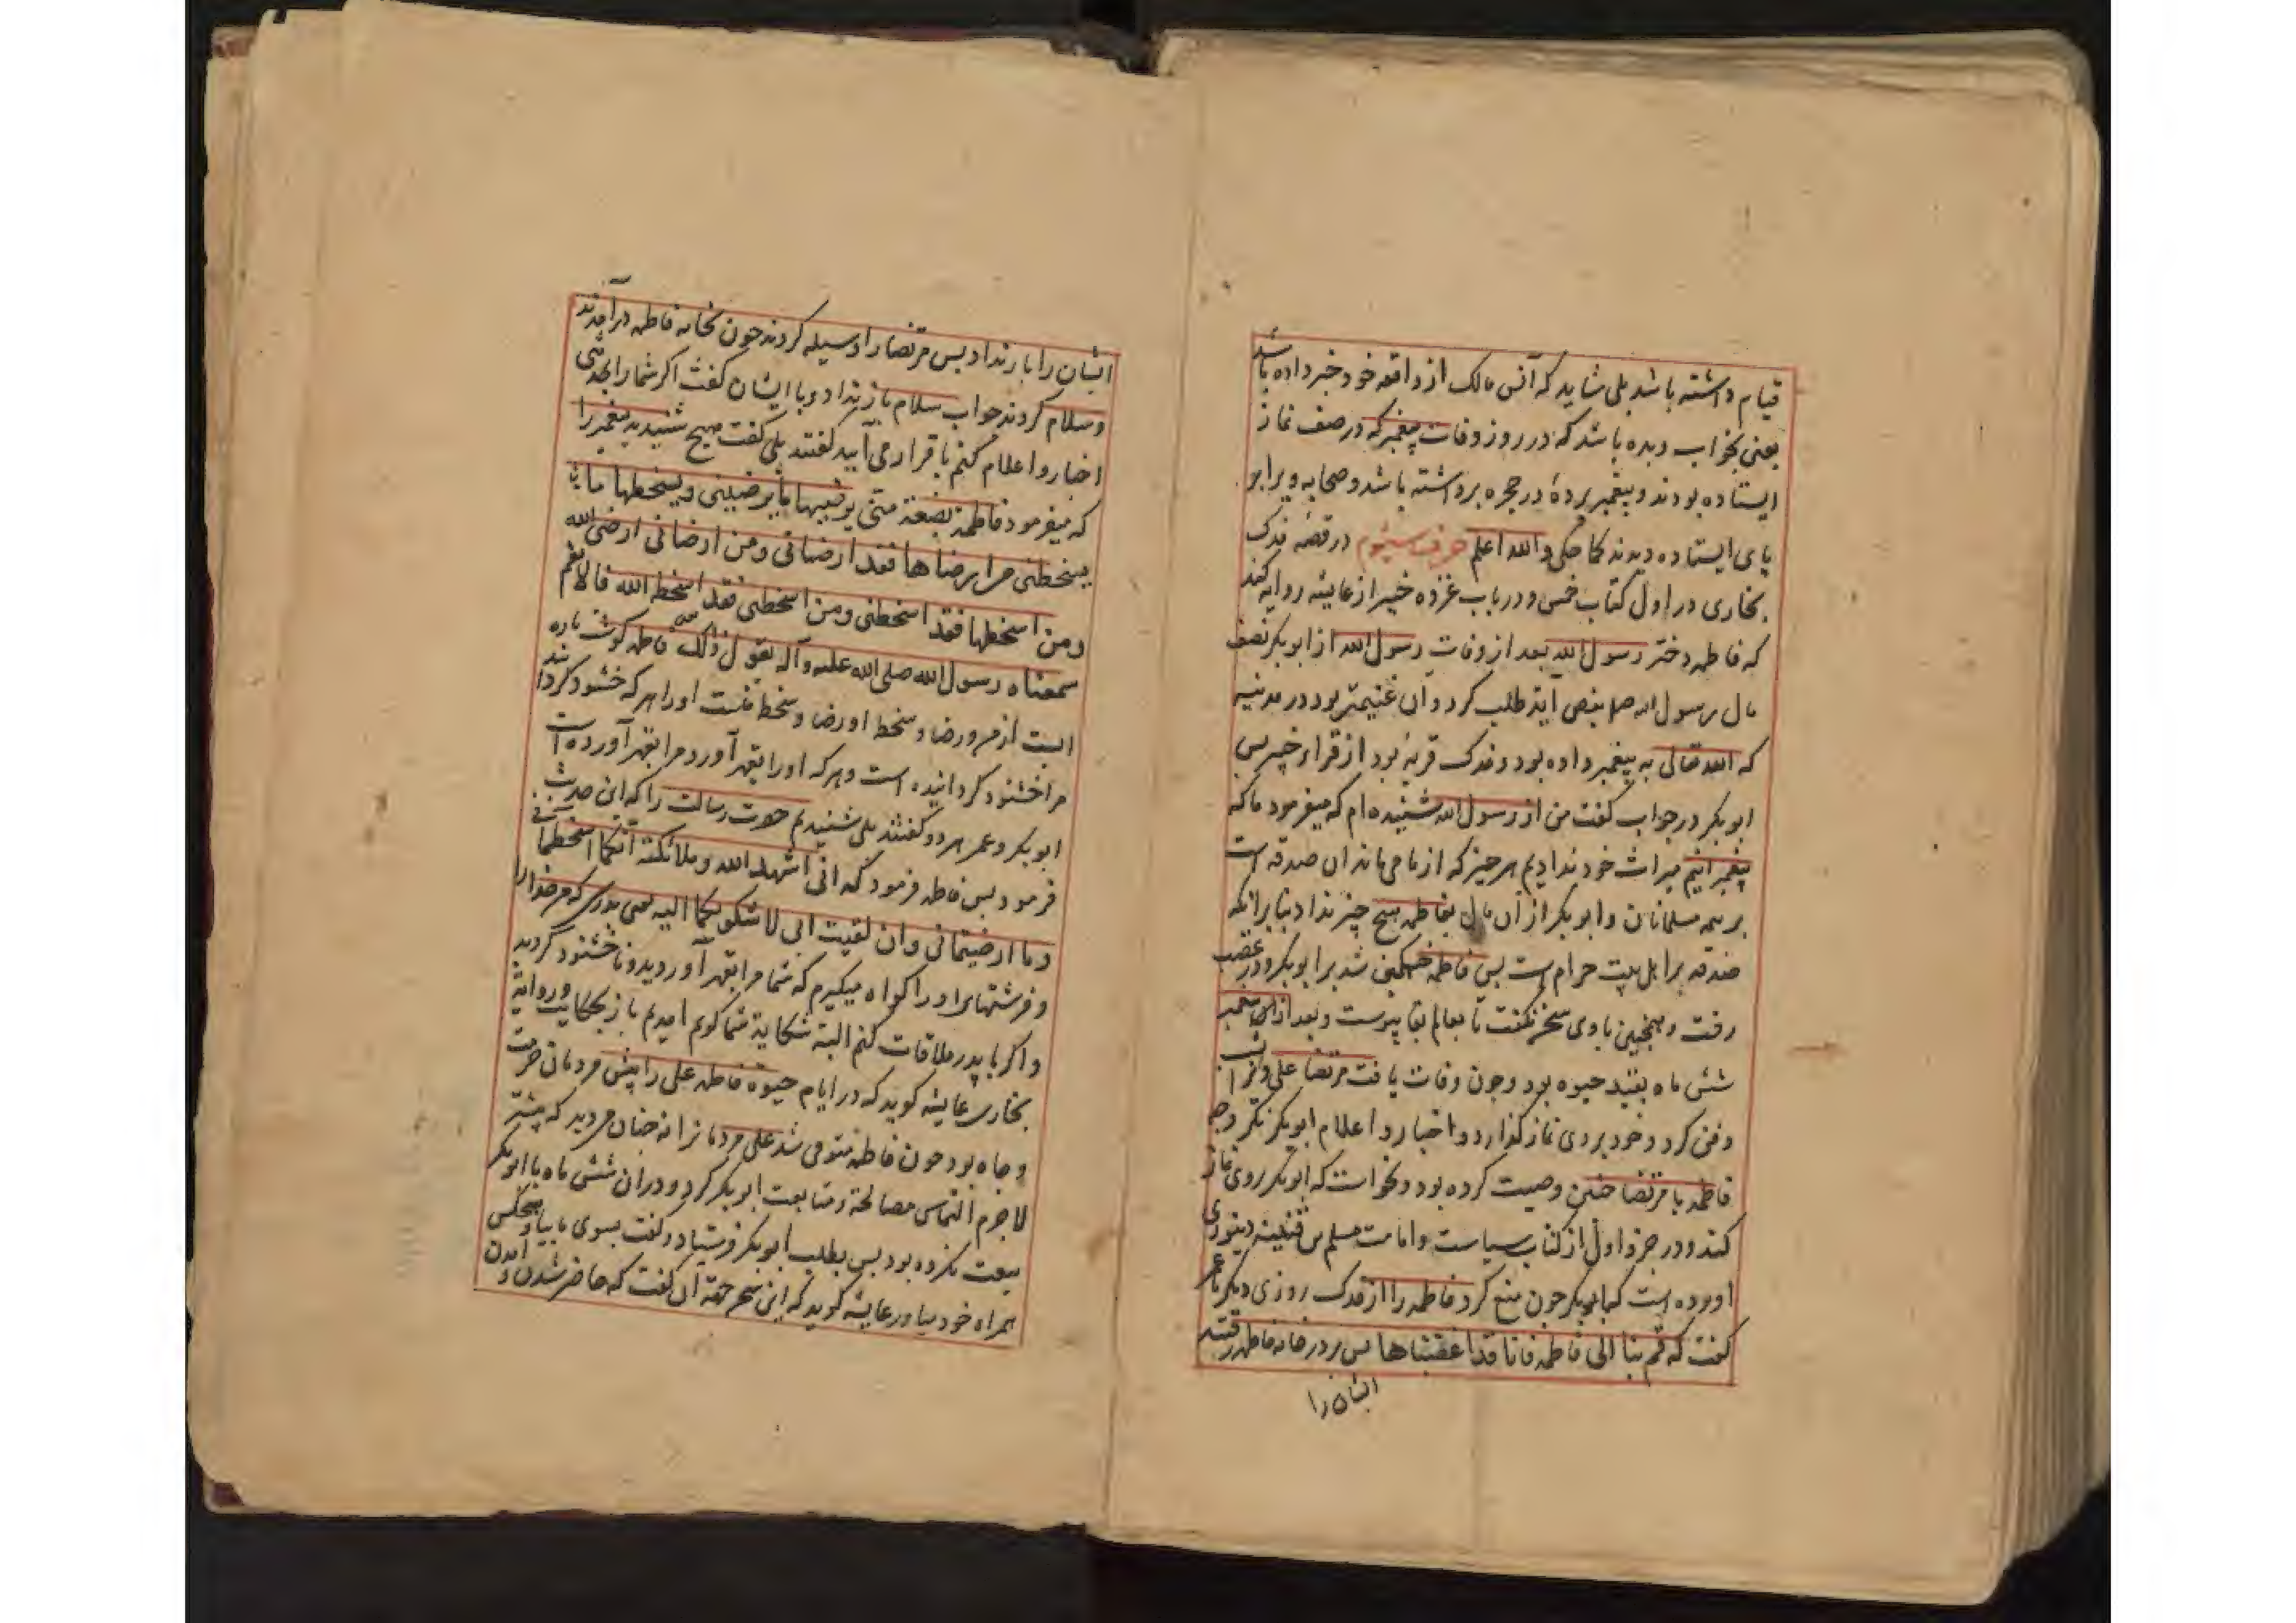 قیام داشته باشد بلی شاید که آنس مالک از واقعه خود خبر داده باشد
یعنی بخواب دیده باشد که در روز وفات پیغمبر که در صف نماز
ایستاده بودند و پیغمبر پردهٔ در حجره برداشته باشد و صحابه ویرا بر
پای ایستاده دیدند کما حکی والله اعلم حرف سیوم در قصّه فدک
بخاری در اول کتاب خمس و در باب غزوه خیبر از عایشه روایه کند
که فاطمه دختر رسول الله بعد از وفات رسول الله از ابوبکر نصف
مال رسول الله بنص آیة طلب کرد و آن غنیمتی بود در مدینه
که الله تعالی به پیغمبر داده بود و فدک قریهٔ بود از قراء خیبر پس
ابوبکر در جواب گفت من از رسول الله شنیده ام که میفرمود ما که
پیغمبرانیم میراث خود ندادیم هر چیز که از ما می ماند ان صدقه است
بر همه مسلمانان و ابوبکر از آن مال بفاطمه هیچ چیز نداد بنا برانکه
صدقه بر اهل بیت حرام است پس فاطمه خشمگین شد بر ابوبکر و در غضب
رفت و همچنین با وی سخن نگفت تا بعالم بقا پیوست و بعد از پیغمبر
شش ماه بقید حیوه بود و چون وفات یافت مرتضا علی ویرا بشب
دفن کرد و خود بر وی نماز گذارد و اخبار و اعلام ابوبکر نکرد چه
فاطمه با مرتضا چنین وصیت کرده بود و نخواست که ابوبکر بر وی نماز
کند و در جزء اول از کتاب سیاست و امامت مسلم بن قتیبه دینوری
آورده است که ابوبکر چون منع کرد فاطمه را از فدک روزی دیگر با عمر
گفت که قم بنا الی فاطمه فانا قد اغضبناها پس بر در خانه فاطمه رفتند
ایشان را
ایشان را بار نداد پس مرتضا را وسیله کردند چون بخانه فاطمه درآمدند
و سلام کردند جواب سلام باز نداد و با ایشان گفت اگر شما را بحدیثی
اخبار و اعلام کنم باقرار می آیید گفتند بلی گفت هیچ شنیدید پیغمبر را
که میفرمود فاطمة بضعة منّی یرضیها ما یرضینی و یسخطها ما
یسخطنی من ارضاها فقد ارضانی و من ارضانی ارضی الله
و من اسخطها فقد اسخطنی و من اسخطنی فقد اسخط الله قالا نعم
سمعناه رسول الله صلی الله علیه وآله یقول ذلک فاطمه گوشت پاره
ایست از من و رضا و سخط او رضا و سخط منست او را هر که خشنود گرداند
مرا خشنود گردانیده است و هر که او را بقهر آورد مرا بقهر آورده است
ابوبکر و عمر هر دو گفتند بلی شنیدیم حضرت رسالت را که این حدیث
فرمود پس فاطمه فرمود که انی اشهد الله و ملائکته انکما اسخطتمانی
و ما ارضیتمانی و ان لقیت ابی لاشکونکما الیه یعنی بدرستی که من خدا را
و فرشتهای او را گواه میگیرم که شما مرا بقهر آوردید و نا خشنود کردید
و اگر با پدر ملاقات کنم البته شکایة شما گویم امدیم باز بحکایت و روایة
بخاری عایشه گوید که در ایام حیوة فاطمه علی را پیش مردمان حرمت
و جاه بود چون فاطمه متوفی شد علی مردمانرا نه چنان می دید که پیشتر
لاجرم التماس مصالحة و متابعت ابوبکر کرد و دران شش ماه با ابوبکر
بیعت نکرده بود پس بطلب ابوبکر فرستاد و گفت بسوی ما بیا و هیچکس
همراه خود میاور عایشه گوید که این سخن جهة آن گفت که حاضر شدن و آمدن